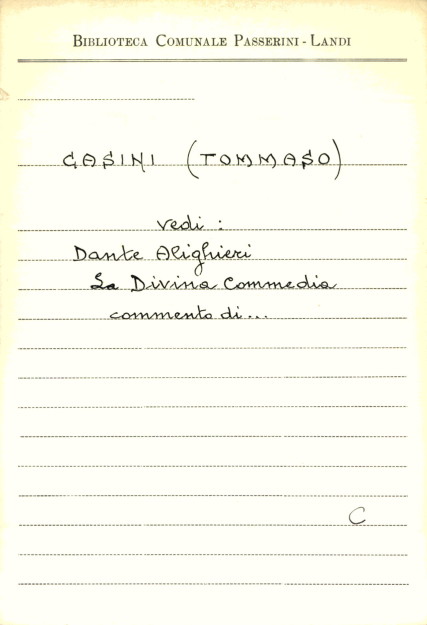 BIBLIOTECA COMUNALE PASSERINI - LANDI
CASINI (TOMMASO)
vedi :
Dante Alighieri
La Divina Commedia
commento di...
C